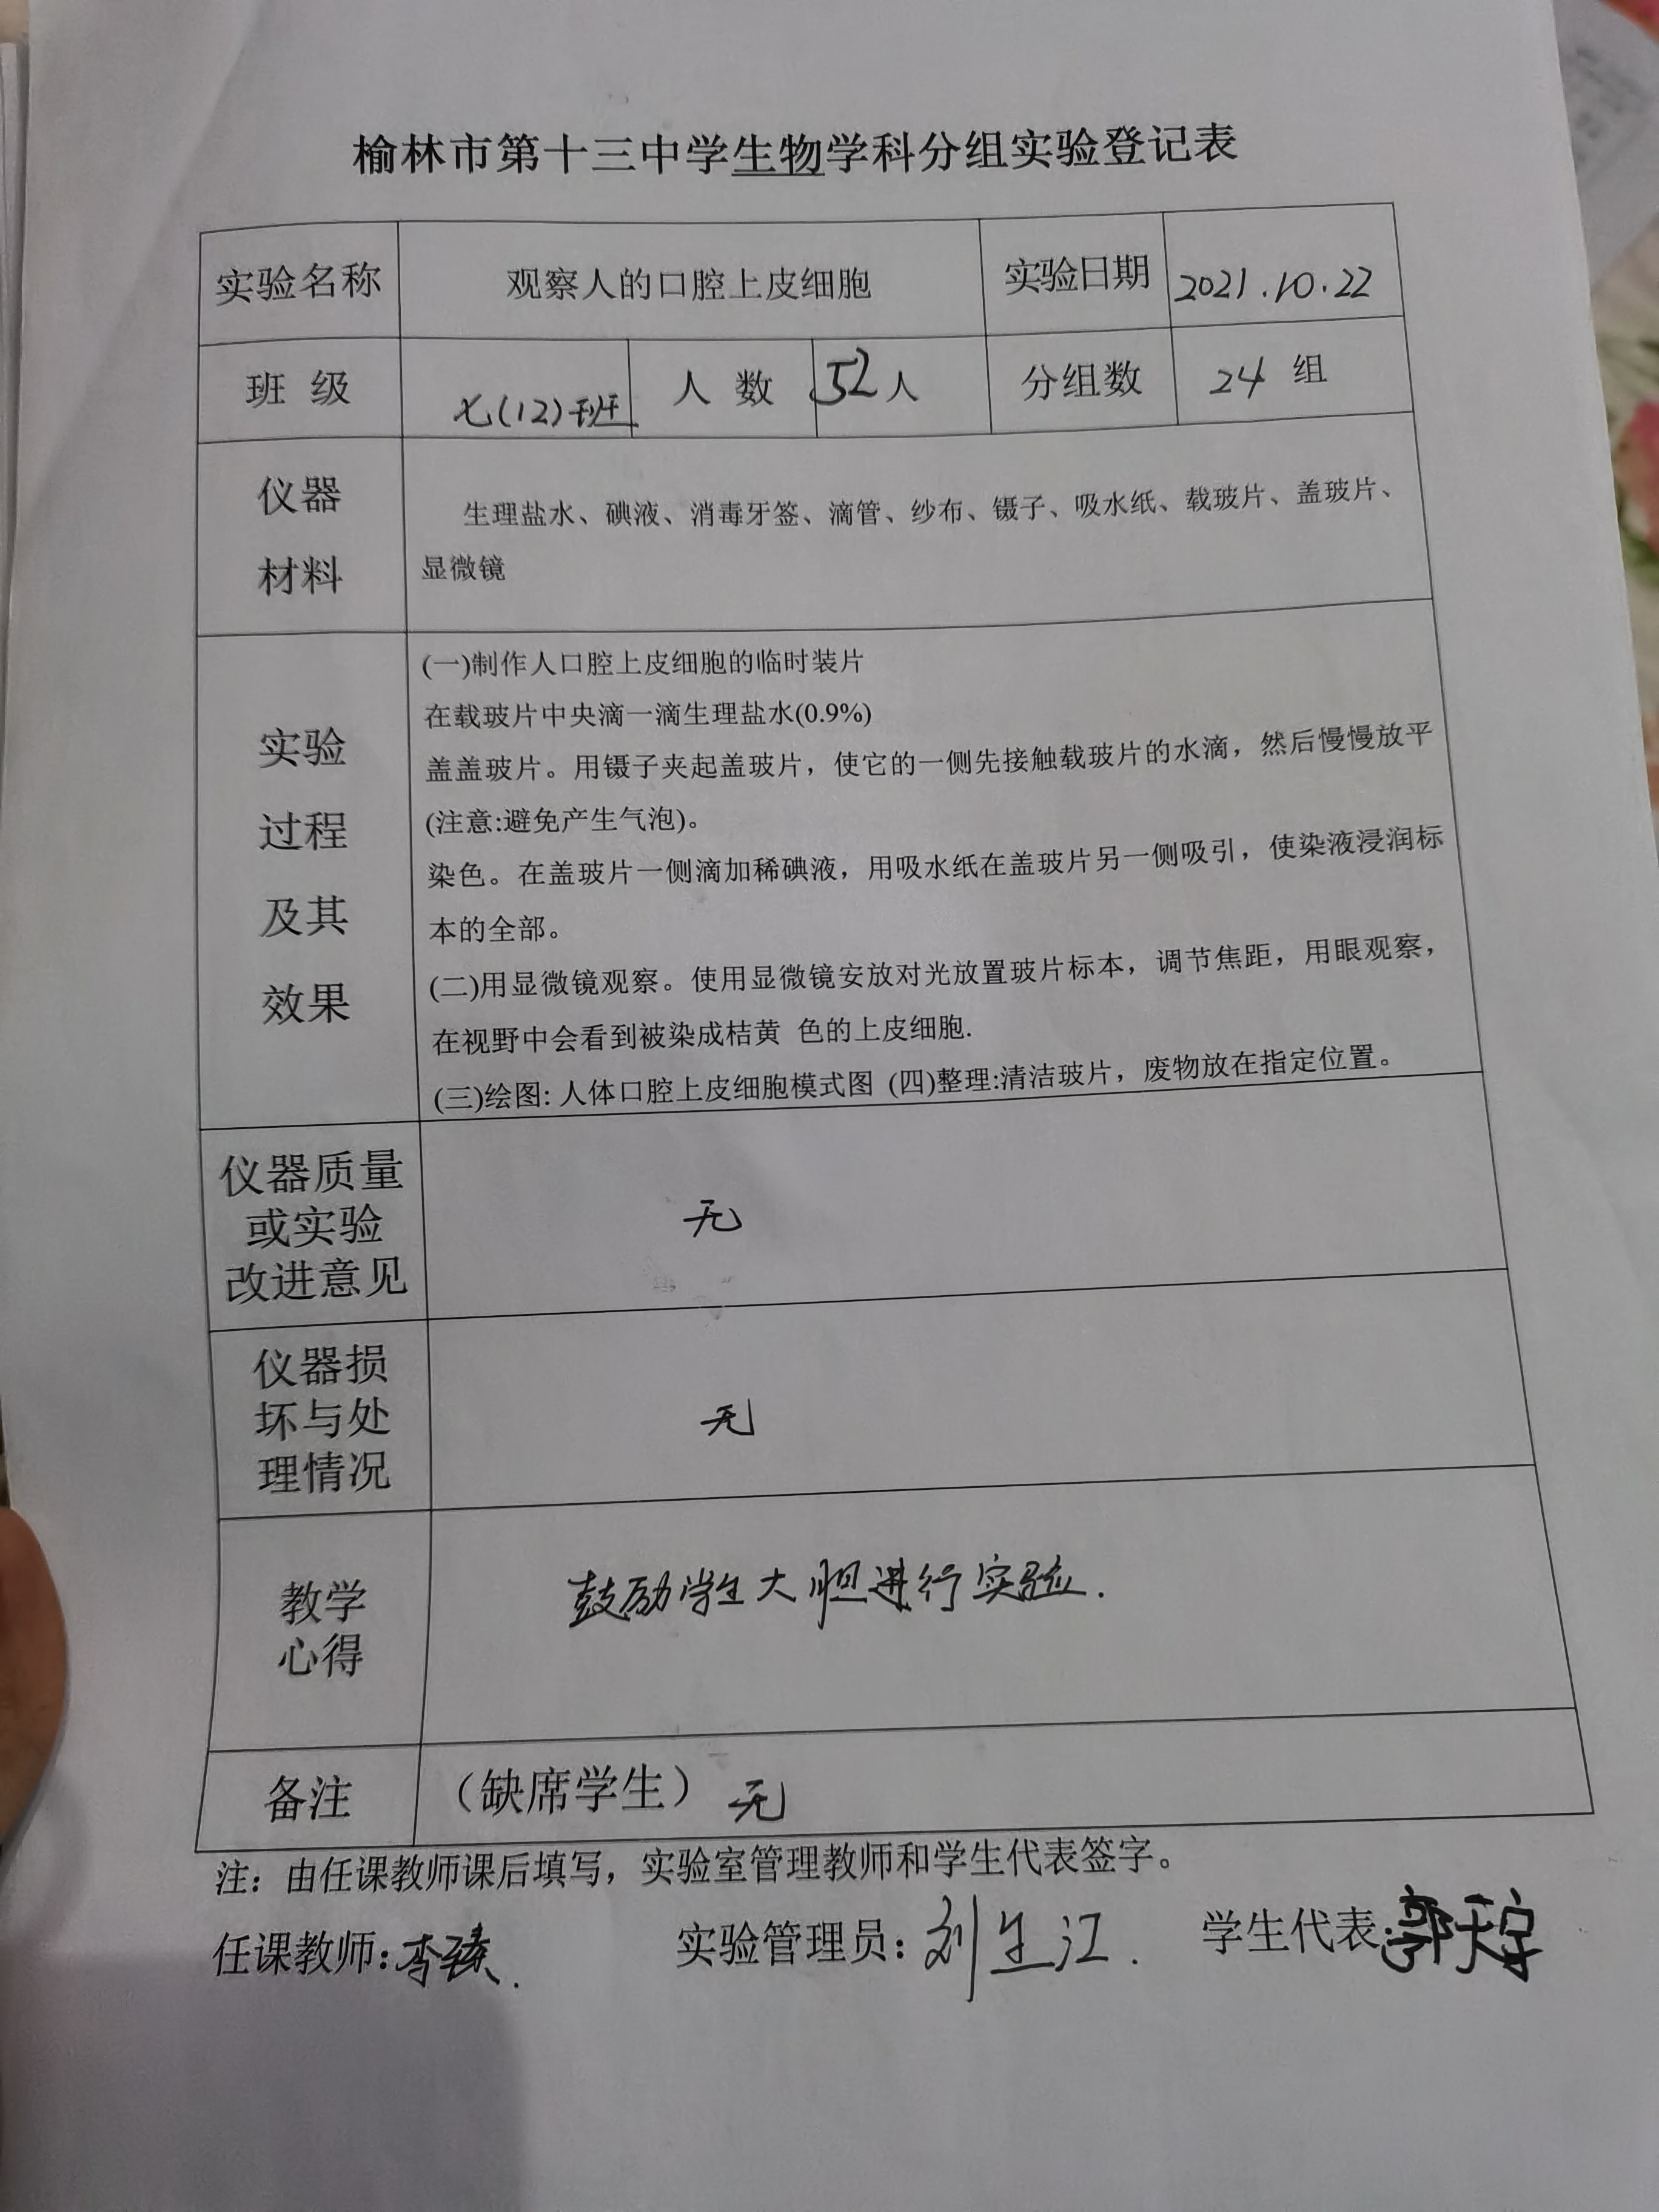 榆林市第十三中学生物学科分组实验登记表
实验名称 观察人的口腔上皮细胞 实验日期 2021.10.22
班 级 七(12)班 人 数 52人 分组数 24 组
仪器
材料
生理盐水、碘液、消毒牙签、滴管、纱布、镊子、吸水纸、载玻片、盖玻片、
显微镜
实验
过程
及其
效果
(一)制作人口腔上皮细胞的临时装片
在载玻片中央滴一滴生理盐水(0.9%)
盖盖玻片。用镊子夹起盖玻片，使它的一侧先接触载玻片的水滴，然后慢慢放平
(注意:避免产生气泡)。
染色。在盖玻片一侧滴加稀碘液，用吸水纸在盖玻片另一侧吸引，使染液浸润标
本的全部。
(二)用显微镜观察。使用显微镜安放对光放置玻片标本，调节焦距，用眼观察，
在视野中会看到被染成桔黄 色的上皮细胞.
(三)绘图: 人体口腔上皮细胞模式图 (四)整理:清洁玻片，废物放在指定位置。
仪器质量
或实验
改进意见
无
仪器损
坏与处
理情况
无
教学
心得
鼓励学生大胆进行实验.
备注 （缺席学生） 无
注：由任课教师课后填写，实验室管理教师和学生代表签字。
任课教师:李 实验管理员：刘生江. 学生代表:郭天宇